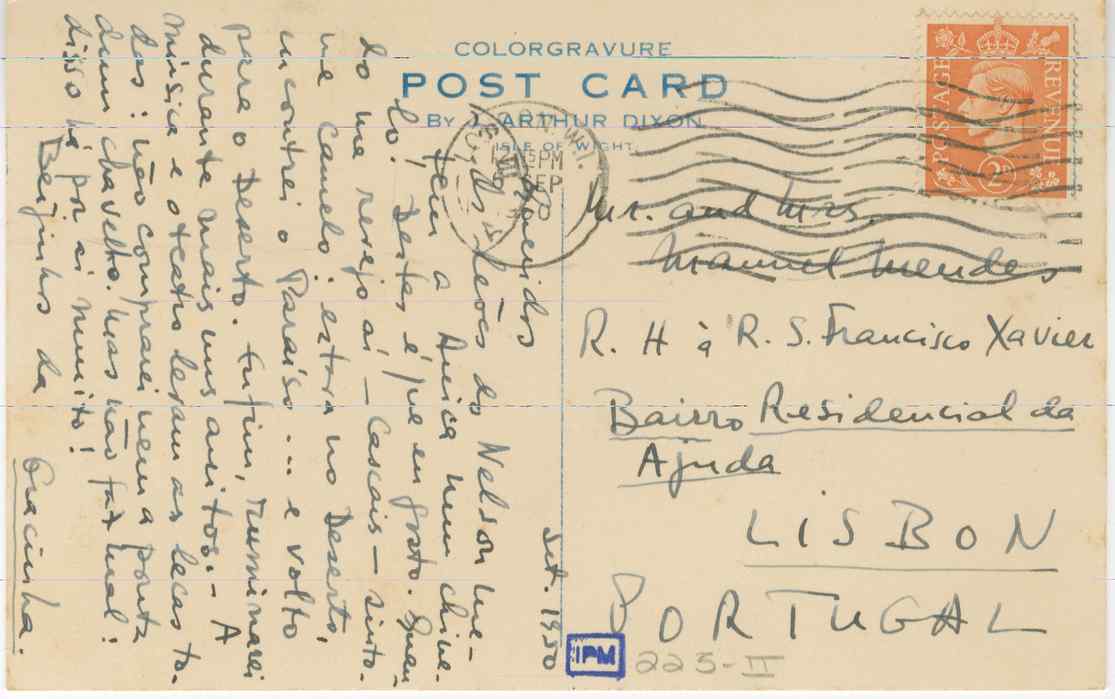 COLORGRAVURE
POST CARD
BY J. ARTHUR DIXON
ISLE OF WIGHT
POSTAGE
REVENUE
2D
12 15 PM
SEP
1950
Set. 1950
Queridos
Um dos leões do Nelson me-
teu a África num chine-
lo. Destes é que eu gosto. Quan-
do me vejo aí - Cascais - sinto-
me Camelo: estava no Deserto,
encontrei o Paraíso... e volto
para o Deserto. Enfim, ruminarei
durante mais uns anitos. - A
música e o teatro levam as lecas to-
das: não comprei nem a ponta
dum chavelho. Mas não faz mal:
disso há por aí muito!
Beijinhos da
Gracinha.
Mr. and Mrs.
Manuel Mendes
R. H à R. S. Francisco Xavier
Bairro Residencial da
Ajuda
LISBON
PORTUGAL
IPM
223-II